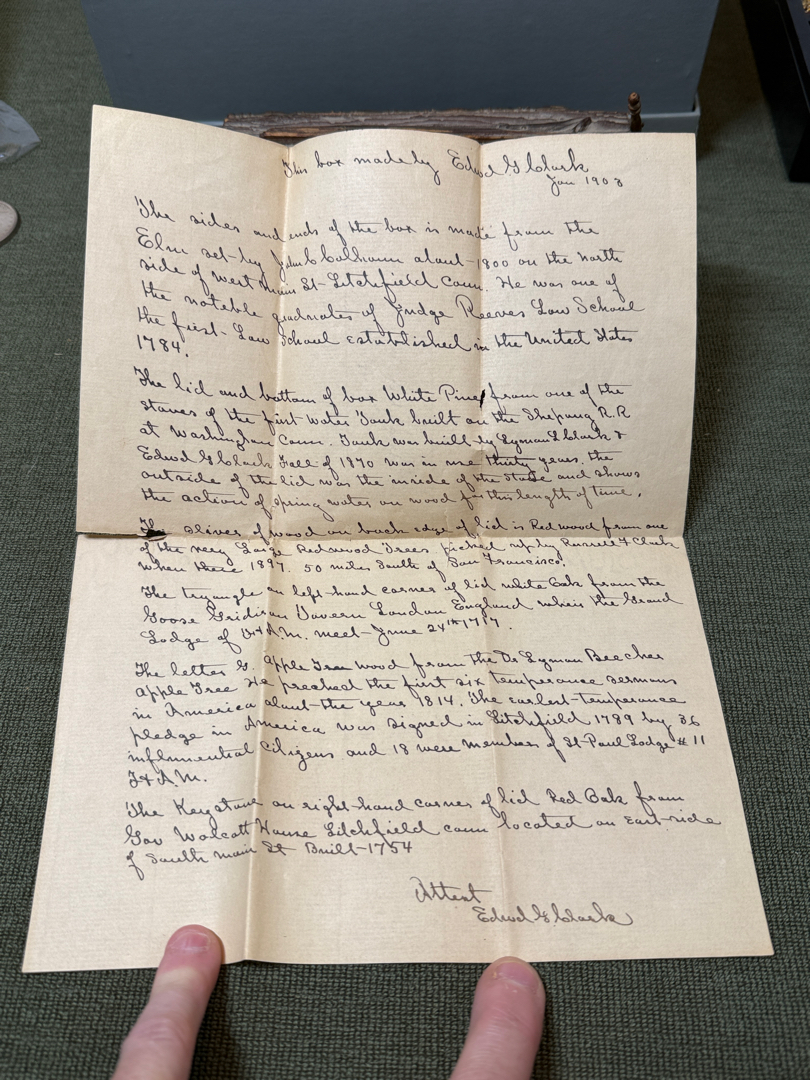 This box made by Edwd G Clark
Jan 1903
The sides and ends of the box is made from the
Elm set by John C Calhoun about 1800 on the north
side of west main St Litchfield Conn. He was one of
the noteble graduates of Judge Reeves Law School
the first Law School established in the United States
1784.
The lid and bottom of box White Pine from one of the
staves of the first water Tank built on the Shepaug R.R
at Washington Conn. Tank was built by Lyman L Clark &
Edwd G Clark Fall of 1870 was in use thirty years. the
outside of the lid was the inside of the stave and shows
the action of spring water on wood for this length of time.
The slives of wood on back edge of lid is Redwood from one
of the very Large Redwood Trees picked up by Russell F Clark
when there 1897. 50 miles South of San Francisco.
The tryangle on left-hand corner of lid white Oak from the
Goose Gridiron Tavern London England where the Grand
Lodge of A.M. meet June 24th 1717.
The letter G. Apple Tree wood from the Dr Lyman Beecher
Apple Tree He preached the first six temperance sermons
in America about the year 1814. The earliest temperance
pledge in America was signed in Litchfield 1789 by 36
influmential citigens and 18 were members of St Paul Lodge # 11
F & A.M.
The Keystone on right-hand corner of lid Red Oak from
Gov Wolcott House Litchfield conn located on East side
of South main St Built 1754
Attest
Edwd G. Clark